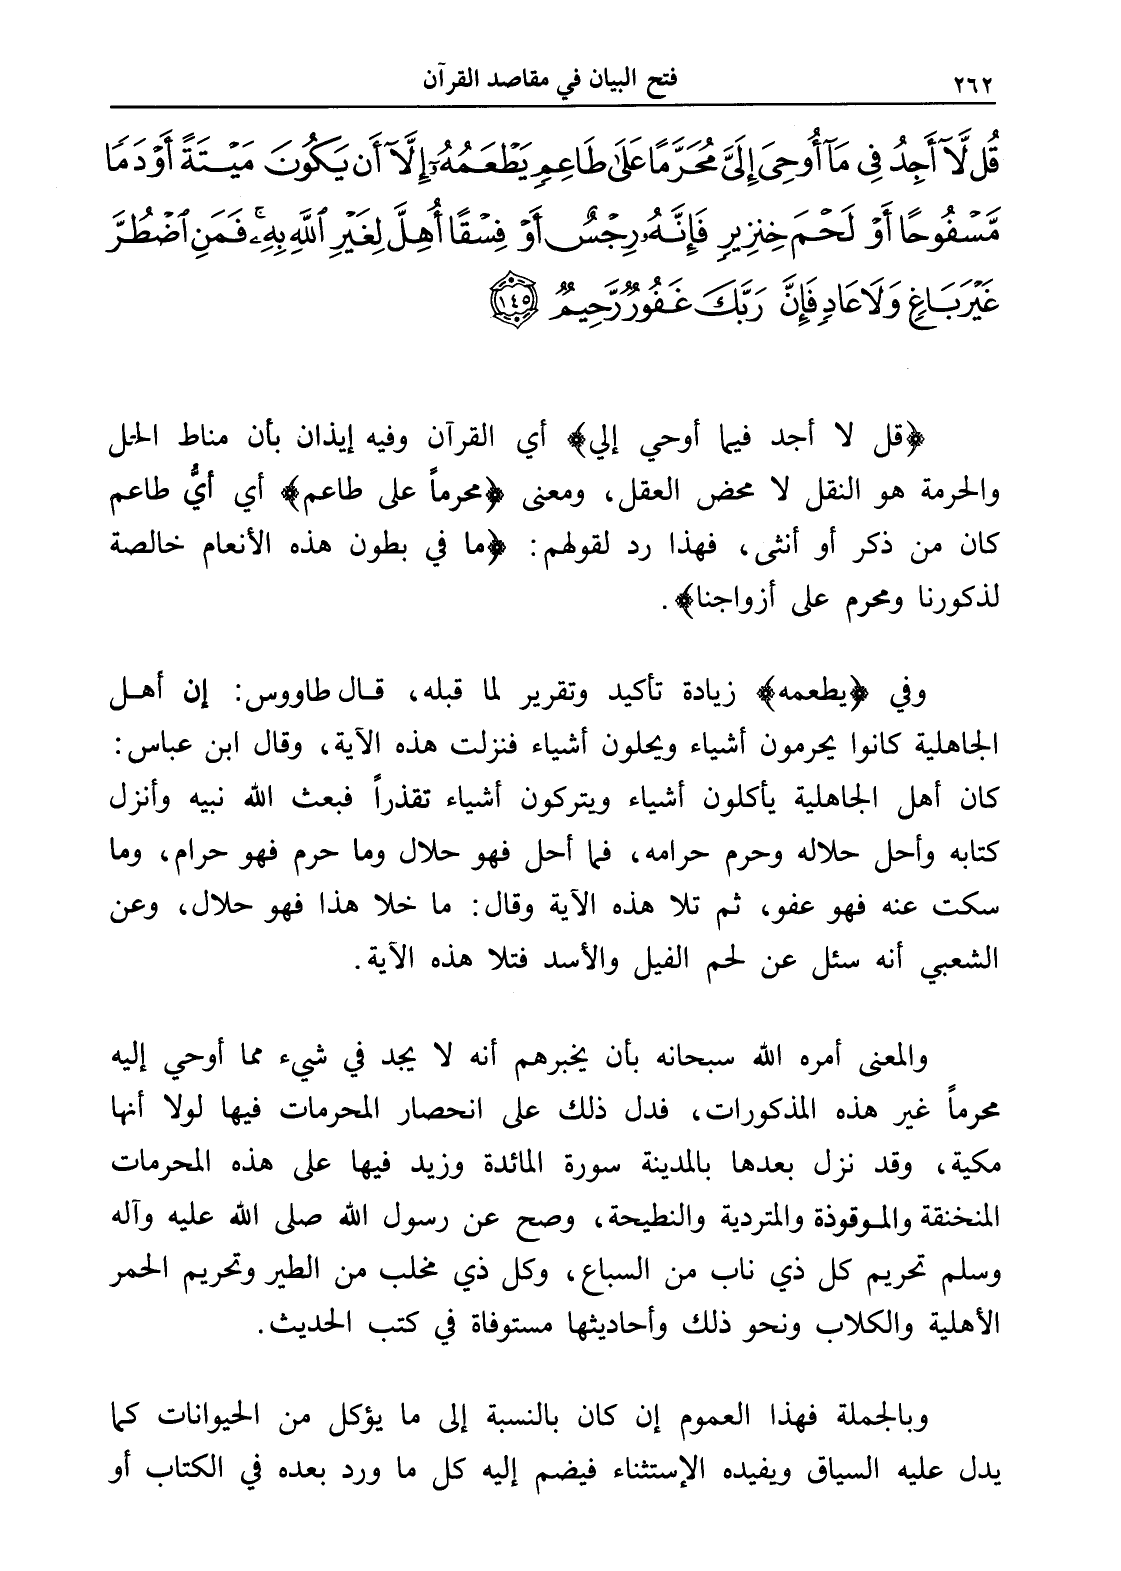 ٢٦٢ فتح البيان في مقاصد القرآن
قُل لَّآ أَجِدُ فِى مَآ أُوحِىَ إِلَىَّ مُحَرَّمًا عَلَىٰ طَاعِمٍ يَطْعَمُهُۥٓ إِلَّآ أَن يَكُونَ مَيْتَةً أَوْ دَمًا
مَّسْفُوحًا أَوْ لَحْمَ خِنزِيرٍ فَإِنَّهُۥ رِجْسٌ أَوْ فِسْقًا أُهِلَّ لِغَيْرِ ٱللَّهِ بِهِۦ ۚ فَمَنِ ٱضْطُرَّ
غَيْرَ بَاغٍ وَلَا عَادٍ فَإِنَّ رَبَّكَ غَفُورٌ رَّحِيمٌ ١٤٥
﴿قل لا أجد فيما أوحي إلي﴾ أي القرآن وفيه إيذان بأن مناط الحل
والحرمة هو النقل لا محض العقل، ومعنى ﴿محرماً على طاعم﴾ أي أيُّ طاعم
كان من ذكر أو أنثى، فهذا رد لقولهم: ﴿ما في بطون هذه الأنعام خالصة
لذكورنا ومحرم على أزواجنا﴾.
وفي ﴿يطعمه﴾ زيادة تأكيد وتقرير لما قبله، قال طاووس: إن أهل
الجاهلية كانوا يحرمون أشياء ويحلون أشياء فنزلت هذه الآية، وقال ابن عباس:
كان أهل الجاهلية يأكلون أشياء ويتركون أشياء تقذراً فبعث الله نبيه وأنزل
كتابه وأحل حلاله وحرم حرامه، فما أحل فهو حلال وما حرم فهو حرام، وما
سكت عنه فهو عفو، ثم تلا هذه الآية وقال: ما خلا هذا فهو حلال، وعن
الشعبي أنه سئل عن لحم الفيل والأسد فتلا هذه الآية.
والمعنى أمره الله سبحانه بأن يخبرهم أنه لا يجد في شيء مما أوحي إليه
محرماً غير هذه المذكورات، فدل ذلك على انحصار المحرمات فيها لولا أنها
مكية، وقد نزل بعدها بالمدينة سورة المائدة وزيد فيها على هذه المحرمات
المنخنقة والموقوذة والمتردية والنطيحة، وصح عن رسول الله صلى الله عليه وآله
وسلم تحريم كل ذي ناب من السباع، وكل ذي مخلب من الطير وتحريم الحمر
الأهلية والكلاب ونحو ذلك وأحاديثها مستوفاة في كتب الحديث.
وبالجملة فهذا العموم إن كان بالنسبة إلى ما يؤكل من الحيوانات كما
يدل عليه السياق ويفيده الإستثناء فيضم إليه كل ما ورد بعده في الكتاب أو